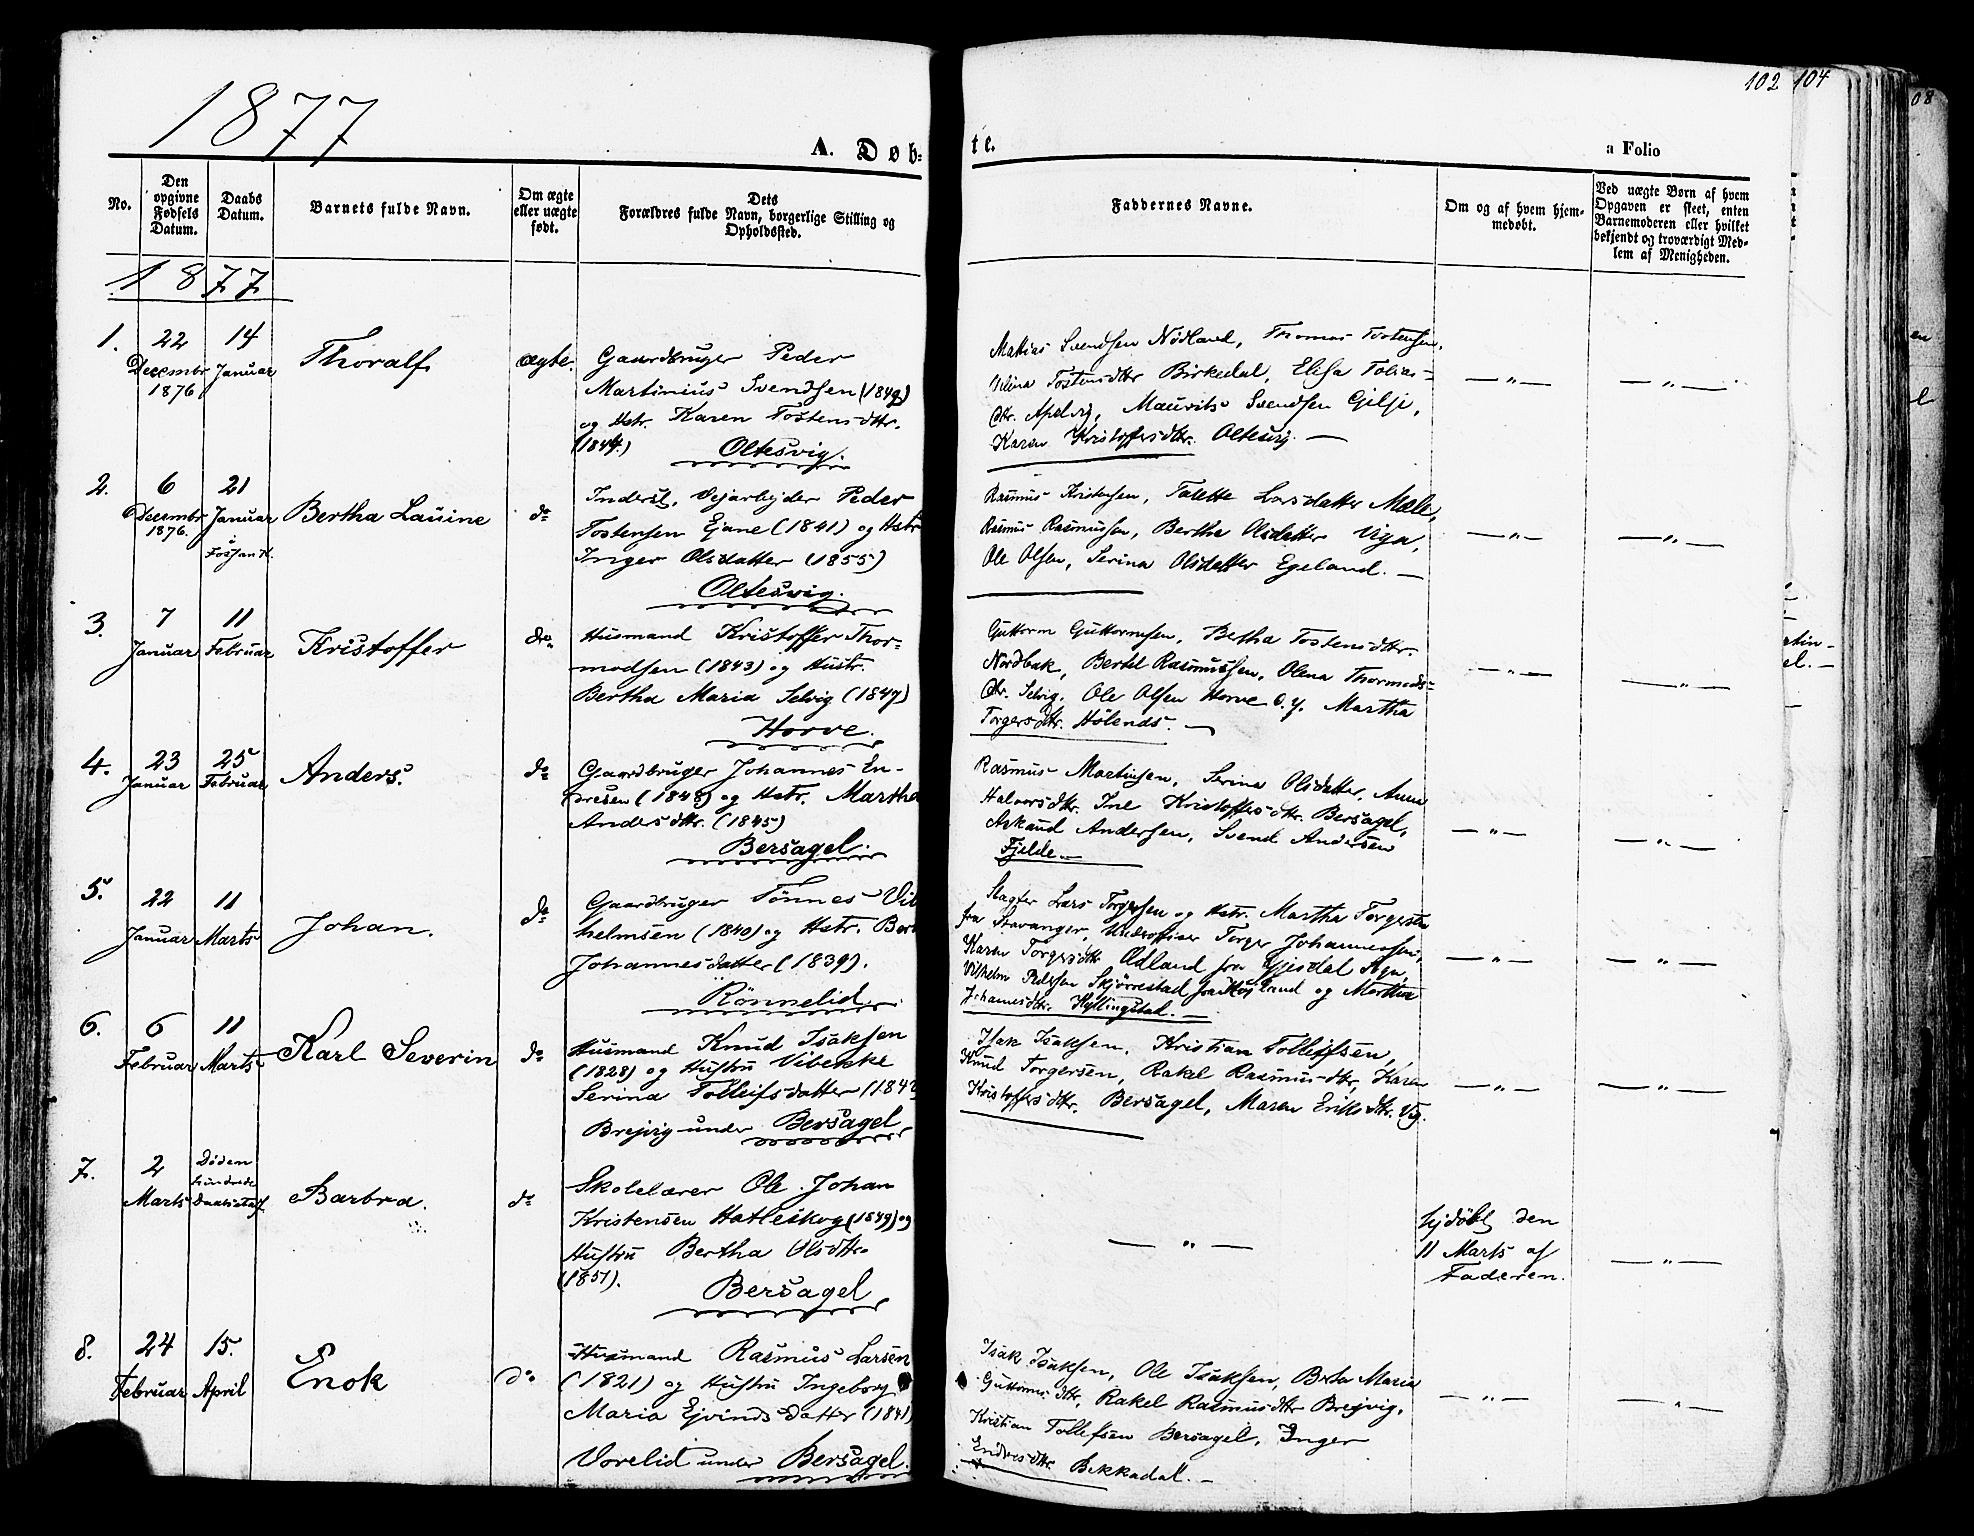 1877
A. Døb-
te.
a Folio
102
104
08
No.
Den opgivne Fødsels Datum.
Daabs Datum.
Barnets fulde Navn.
Om ægte eller uægte født.
Dets Forældres fulde Navn, borgerlige Stilling og Opholdssted.
Faddernes Navne.
Om og af hvem hjemmedøbt.
Ved uægte Børn af hvem Opgaven er skeet, enten Barnemoderen eller hvilket bekjendt og troværdigt Medlem af Menigheden.
1877
1.
22 Decembr 1876
14 Januar
Thoralf.
ægte.
Gaardbruger Peder
Martinius Svendsen (1849)
og Hstr. Karen Tostensdttr.
(1844.) Oltesvig.
Mathias Svendsen Nødland, Thomas Tostensen,
Tostensdttr Birkedal, Elisa Tobias-
dtr. Apelvig, Maurits Svendsen Gilje,
Karen Kristoffersdttr. Oltesvig. —
— " —
— " —
2.
6 Decembr 1876.
21 Januar i Fossan K.
Bertha Lauine
do
Inderst, Vejarbejder Peder
Tostensen Ejane (1841) og Hstr
Inger Olsdatter (1855)
Oltesvig.
Rasmus Kristensen, Talette Larsdatter Mæle,
Rasmus Rasmussen, Bertha Olsdatter Viga,
Ole Olsen, Serina Olsdatter Egeland. —
— " —
— " —
3.
7 Januar
11 Februar
Kristoffer
do
Husmand Kristoffer Thor-
modsen (1843) og Hustr.
Bertha Maria Selvig (1847)
Horve.
Guttorm Guttormsen, Bertha Tostensdttr.
Nordbak, Bertel Rasmussen, Olena Thormods-
dtr. Selvig. Ole Olsen Horve o.y. Martha
Torgersdttr. Hølends. —
— " —
— " —
4.
23 Januar
25 Februar
Anders.
do
Gaardbruger Johannes En-
dresen (1848) og Hstr. Martha
Andersdttr. (1845)
Bersagel.
Rasmus Martinsen, Serina Olsdatter, Anna
Halvorsdttr. Ine Kristoffersdttr. Bersagel,
Askaud Andersen, Svend Andersen
Fjelde. —
— " —
— " —
5.
22 Januar
11 Marts
Johan.
do
Gaardbruger Tönnes Vil
helmsen (1840) og Hstr. Ber
Johannesdatter (1839).
Rönnelid
Slagter Lars Torgersen og Hstr. Martha Torgersdtr
fra Stavanger, Underofficer Torger Johannessen,
Karen Torgersdttr Ødland fra Gjesdal Sgn,
Vilhelm Pedersen Skjörrestad fra Høiland og Martha
Johannesdtr. Hyllingstad. —
— " —
— " —
6.
6 Februar
11 Marts
Karl Severin
do
Husmand Knud Isaksen
(1828) og Hustru Vibekke
Serina Tolleifsdatter (184
Brejvig under Bersagel
Isak Isaksen, Kristian Tolleifsen,
Knud Torgersen, Rakel Rasmusdttr, Karen
Kristoffersdttr. Bersagel, Maren Eriksdttr. Vig.
— " —
— " —
7.
2 Marts
Døden hindrede Daabstadf.
Barbra.
do
Skolelærer Ole Johan
Kristensen Hatleskog (1849) og
Hustru Bertha Olsdttr.
(1851). Bersagel
— " —
hjdøbt den
11 Marts af
Faderen.
— " —
8.
24 Februar
15. April
Enok
do
Husmand Rasmus Larsen
(1821) og Hustru Ingeborg
Maria Ejvindsdatter (1841)
Vorelid under Bersagel.
Isak Isaksen, Ole Isaksen, Berta Maria
Guttormsdttr, Rakel Rasmusdttr Brejvig,
Kristian Tollefsen Bersagel, Inger
Endresdttr. Bekkadal. —
— " —
— " —